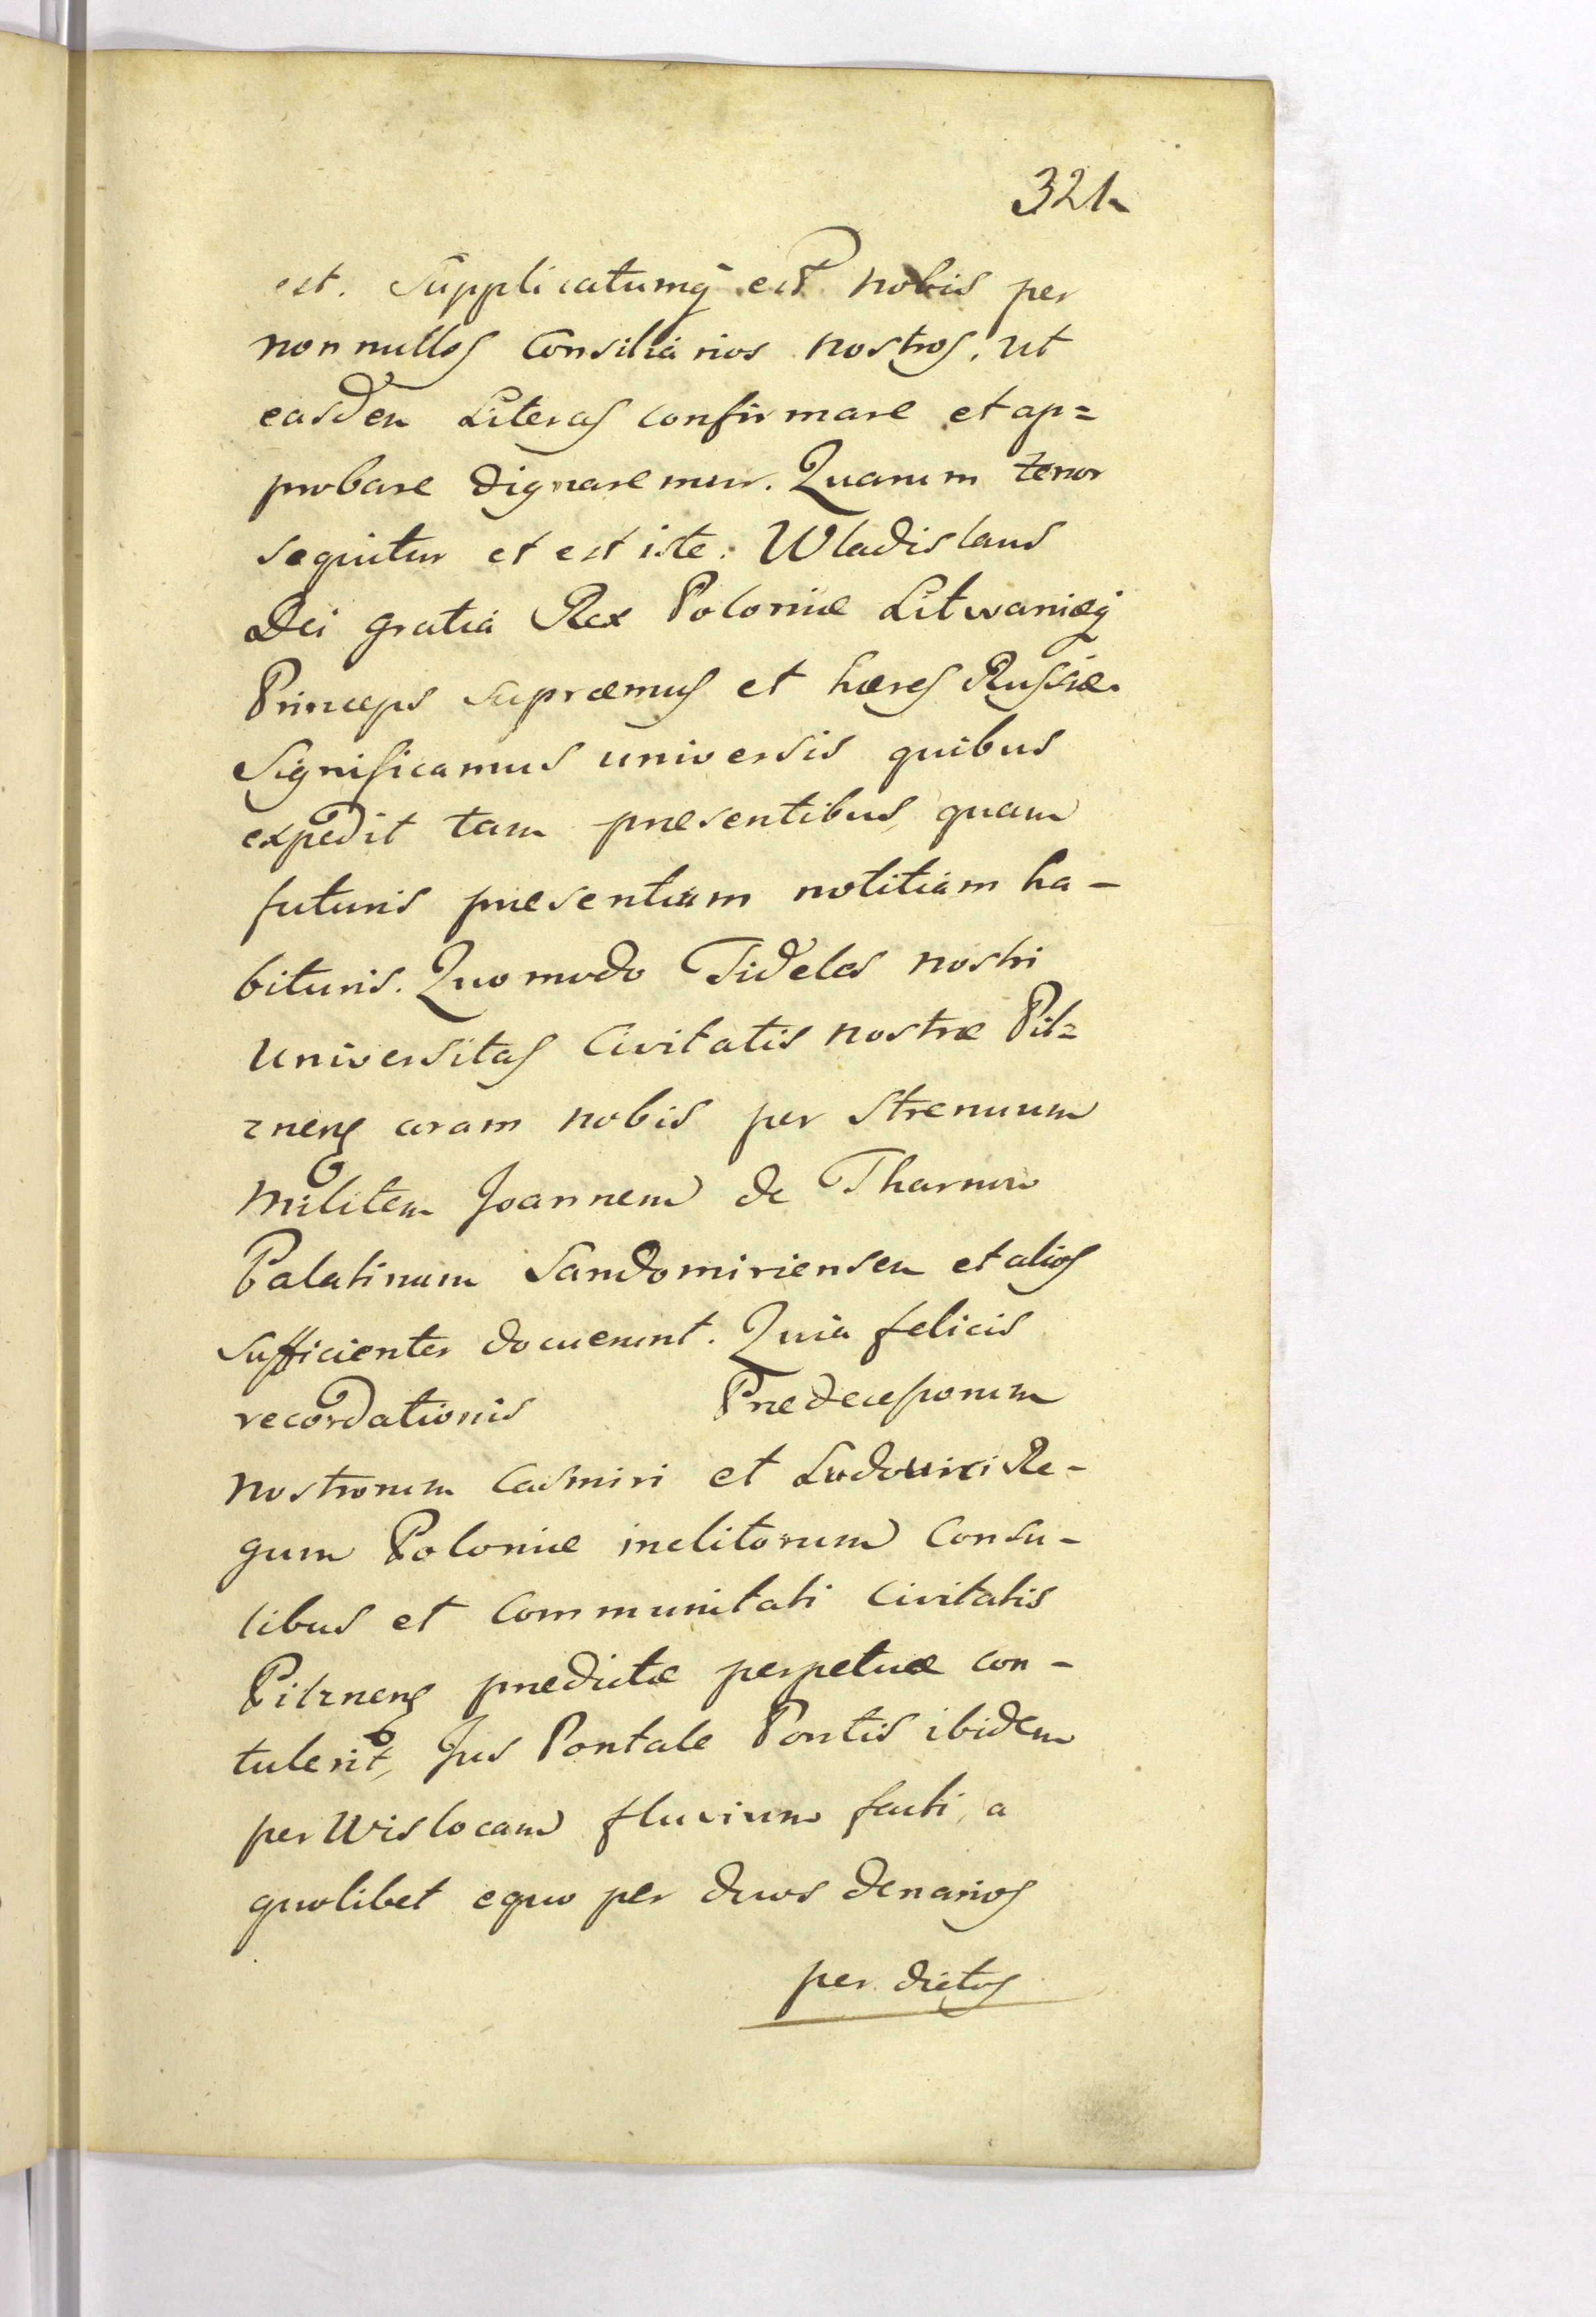 321
est. Supplicatumq est nobis per
non nullos Consiliarios nostros, ut
easdem Literas confirmare et ap=
probare dignaremur. Quarum tenor
sequitur et est iste: Wladislaus
Dei gratia Rex Poloniæ Litwaniæq
Princeps supræmus et hæres Russiæ.
Significamus universis quibus
expedit tam præsentibus quam
futuris præsentium notitiam ha-
bituris. Quomodo Fideles nostri
Universitas Civitatis nostræ Pil=
znens coram nobis per Strenuum
Militem Joannem de Tharnow
Palatinum Sandomiriensem et alios
sufficienter docuerunt. Quia felicis
recordationis Prædecessorum
nostrorum Casmiri et Ludovici Re-
gum Poloniæ inclitorum Consu-
libus et Communitati Civitatis
Pilznens prædictæ perpetuæ con-
tulerit, Jus Pontale Pontis ibidem
per Wislocam fluvium facti, a
quolibet equo per duos denarios
per dictos